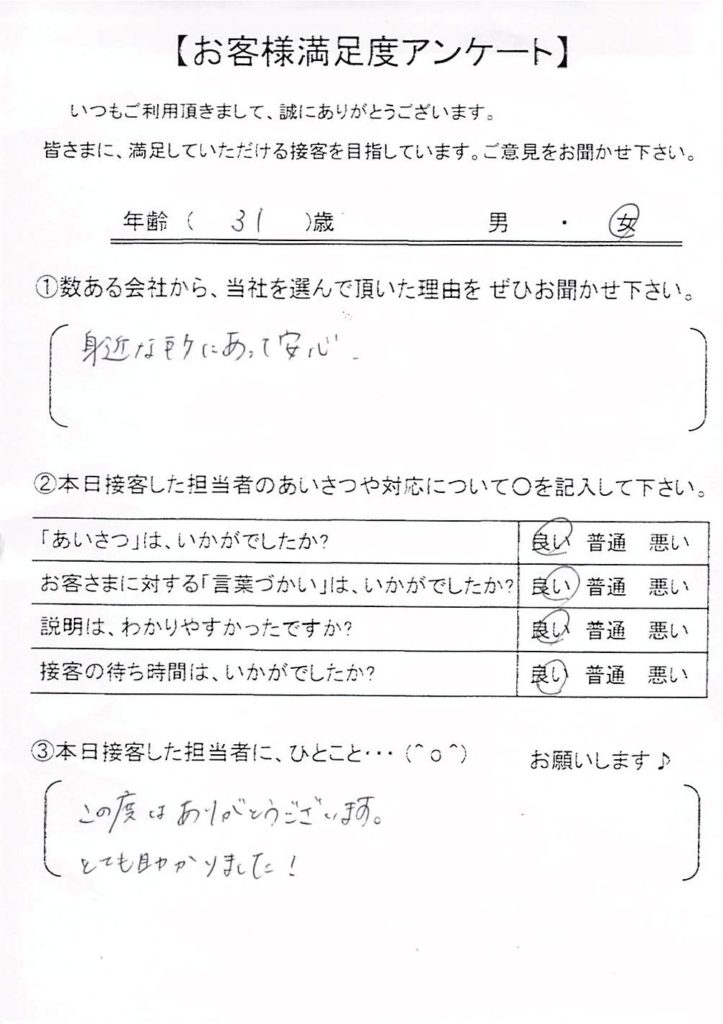 【お客様満足度アンケート】
いつもご利用頂きまして、誠にありがとうございます。
皆さまに、満足していただける接客を目指しています。ご意見をお聞かせ下さい。
年齢（ 31 ）歳 男 ・ 女
①数ある会社から、当社を選んで頂いた理由を ぜひお聞かせ下さい。
身近な にあって安心
②本日接客した担当者のあいさつや対応について〇を記入して下さい。
「あいさつ」は、いかがでしたか? 良い 普通 悪い
お客さまに対する「言葉づかい」は、いかがでしたか? 良い 普通 悪い
説明は、わかりやすかったですか? 良い 普通 悪い
接客の待ち時間は、いかがでしたか? 良い 普通 悪い
③本日接客した担当者に、ひとこと・・・（＾ｏ＾） お願いします♪
この度はありがとうございます。
とても助かりました！